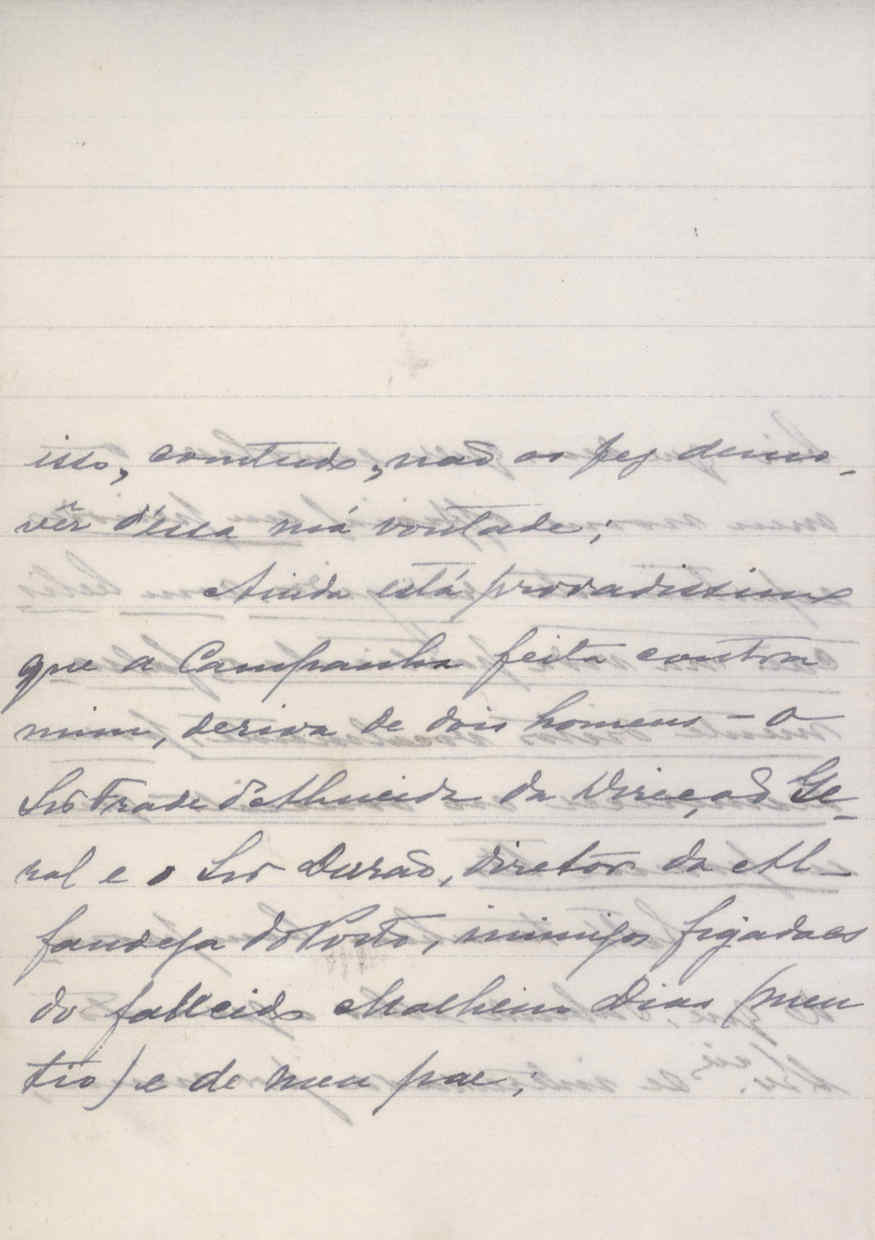 isso, comtudo, não os fez demo-
vêr d'essa má vontade;
Ainda está provadissimo
que a Campanha feita contra
mim, deriva de dois homens - o
Snr Frade d'Almeida da Direcção Ge-
ral e o Snr Durão, diretor da Al-
fandega do Porto, inimigos figadaes
do fallecido Malheiro Dias (meu
tio) e de meu pae;